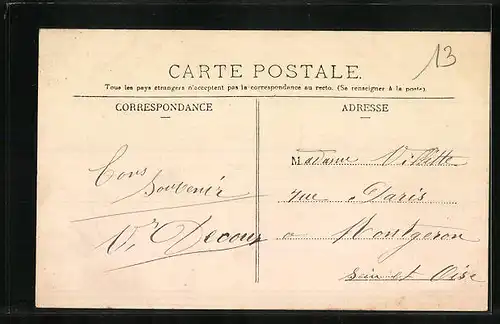 13
CARTE POSTALE.
Tous les pays étrangers n'acceptent pas la correspondance au recto. (Se renseigner à la poste)
CORRESPONDANCE
ADRESSE
Bons
Souvenir
Vr Decour
Madame Villette
rue Paris
a Montgeron
Seine et Oise